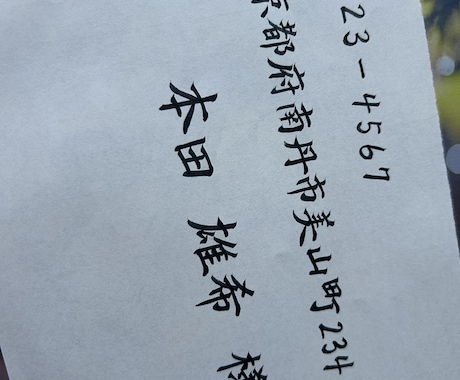 23-4567
京都府南丹市美山町234
本田 雄希 様